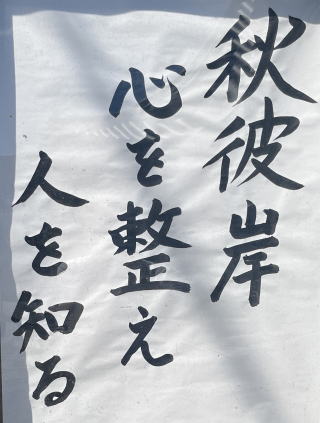 秋彼岸
心を整え
人を知る